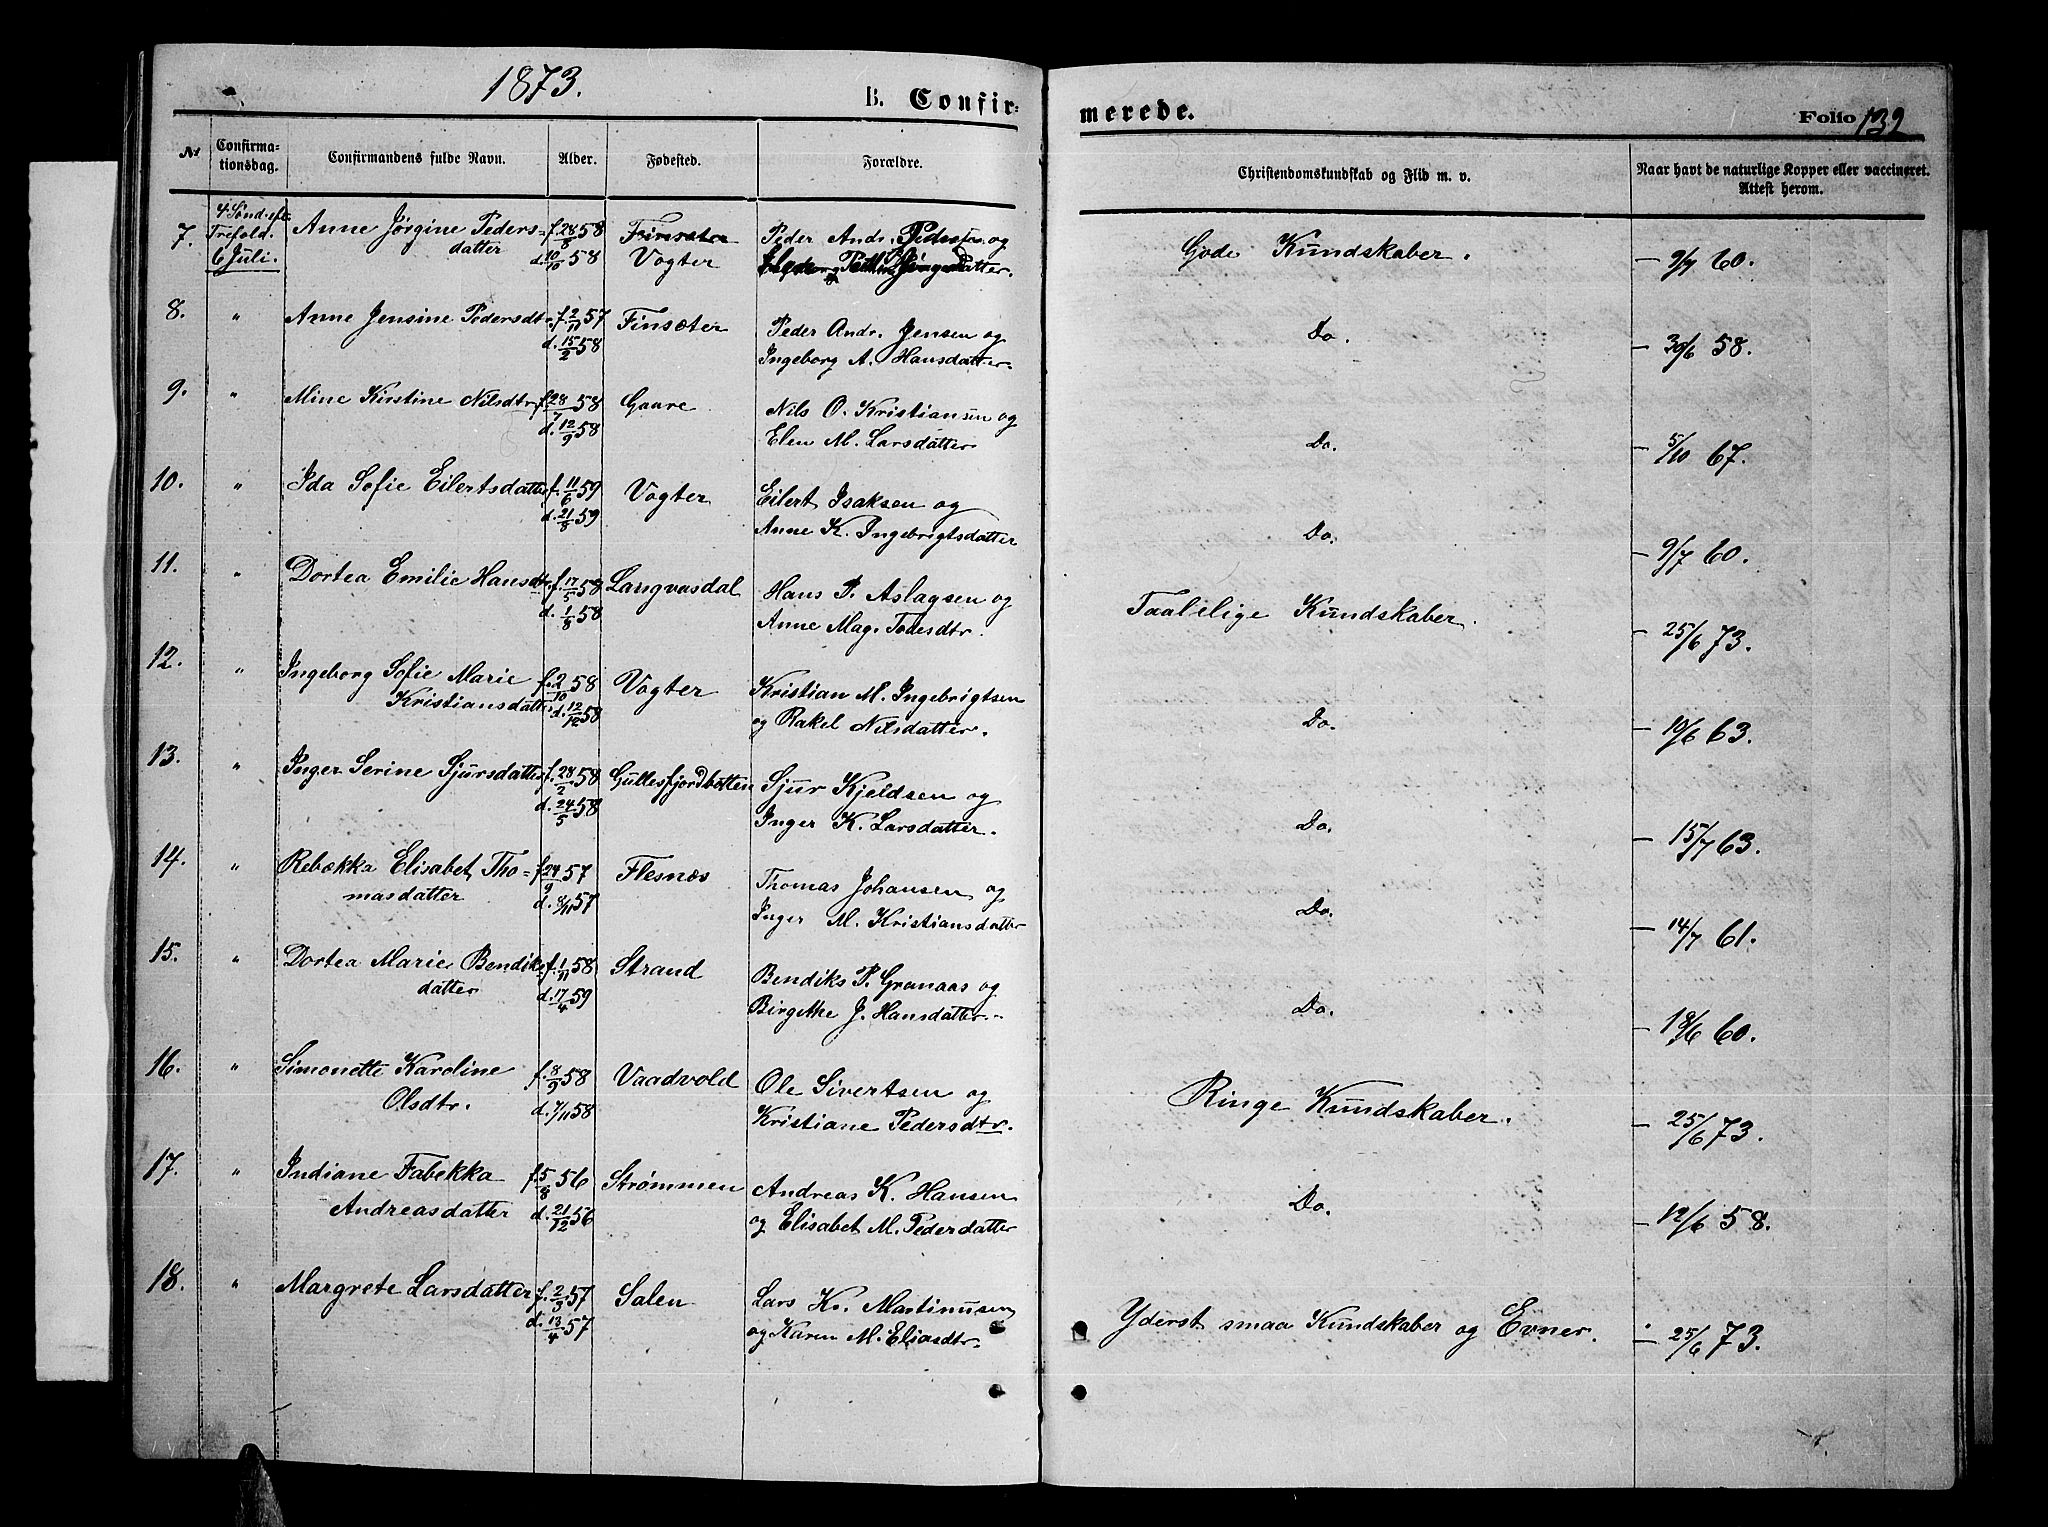 1873.
B. Confir-
merede.
Folio 132
No
Confirma-
tionsdag.
Confirmandens fulde Navn.
Alder.
Fødested.
Forældre.
Christendomskundskab og Flid m. v.
Naar havt de naturlige Kopper eller vaccineret.
Attest herom.
7. 4 Sönd. eft. Anne Jørgine Peders- f. 28/8 58 Finsæter Peder Andr. og
Trefold. datter d. 10/10 58 Vogter
6 Juli.
Gode Kundskaber. – 9/7 60.
8. " Anne Jensine Pedersdtr f. 2/11 57 Finsæter Peder Andr. Jensen og
d. 15/2 58 Ingeborg A. Hansdatter
Do. – 30/6 58.
9. " Mine Kirstine Nilsdtr f. 28/7 58 Gaare Nils O. Kristiansen og
d. 12/9 58 Elen M. Larsdatter
Do. – 5/10 67.
10. " Ida Sofie Eilertsdatter f. 11/6 59 Vogter Eilert Isaksen og
d. 21/8 59 Anne K. Ingebrigtsdatter
Do. – 9/7 60.
11. " Dortea Emilie Hansdtr f. 17/5 58 Langvasdal Hans P. Aslagsen og
d. 1/8 58 Anne Mag. Todesdtr.
Taalelige Kundskaber. – 25/6 73.
12. " Ingeborg Sofie Marie f. 2/10 58 Vogter Kristian M. Ingebrigtsen
Kristiansdatter d. 12/12 58 og Rakel Nilsdatter.
Do. – 19/6 63.
13. " Inger Serine Sjursdatter f. 28/2 58 Gullesfjordbotten Sjur Kjeldsen og
d. 24/5 58 Inger K. Larsdatter.
Do. – 15/7 63.
14. " Rebekka Elisabet Tho- f. 24/9 57 Flesnæs Thomas Johansen og
masdatter d. 8/11 57 Inger M. Kristiansdatter
Do. – 14/7 61.
15. " Dortea Marie Bendiks f. 1/11 58 Strand Bendiks P. Granaas og
datter d. 17/4 59 Birgitte J. Hansdatter.
Do. – 18/6 60.
16. " Simonette Karoline f. 8/9 58 Vaadvold Ole Sivertsen og
Olsdtr. d. 7/11 58 Kristiane Pedersdtr.
Ringe Kundskaber. – 25/6 73.
17. " Indiane Fabekka f. 5/8 56 Strømmen Andreas K. Hansen
Andreasdatter d. 21/12 56 og Elisabet M. Pedersdatter
Do. – 12/6 58.
18. " Margrete Larsdatter f. 2/3 57 Salen Lars Kr. Martinusen
d. 13/4 57 og Karen M. Eliasdtr.
Yderst smaa Kundskaber og Evner. – 25/6 73.